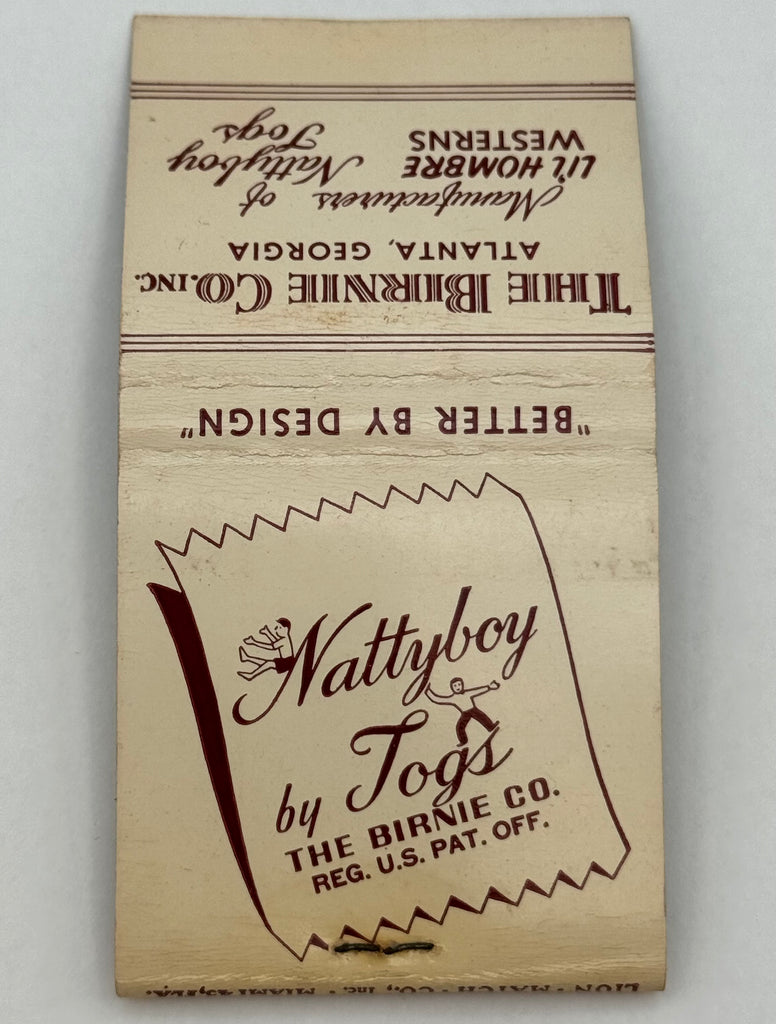 THE BIRNIE CO. INC.
ATLANTA, GEORGIA
Manufacturers of
LI'L HOMBRE Nattyboy
WESTERNS Togs
"BETTER BY DESIGN"
Nattyboy
by Togs
THE BIRNIE CO.
REG. U.S. PAT. OFF.
LION · MATCH · CO., INC. · MIAMI 45, FLA.